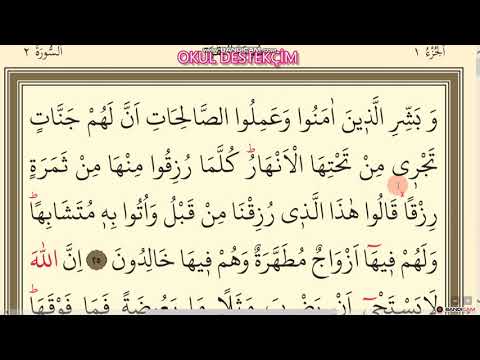 اَلْجُزْءُ ١
اَلسُّورَةُ ٢
OKUL DESTEKÇİM
وَ بَشِّرِ الَّذ۪ينَ اٰمَنُوا وَعَمِلُوا الصَّالِحَاتِ اَنَّ لَهُمْ جَنَّاتٍ
تَجْر۪ي مِنْ تَحْتِهَا الْاَنْهَارُۜ كُلَّمَا رُزِقُوا مِنْهَا مِنْ ثَمَرَةٍ
رِزْقاًۙ قَالُوا هٰذَا الَّذ۪ي رُزِقْنَا مِنْ قَبْلُ وَاُتُوا بِه۪ مُتَشَابِهاًۜ
وَلَهُمْ ف۪يهَٓا اَزْوَاجٌ مُطَهَّرَةٌ وَهُمْ ف۪يهَا خَالِدُونَ ٢٥ اِنَّ اللّٰهَ
لَا يَسْتَحْي۪ٓ اَنْ يَضْرِبَ مَثَلاً مَا بَعُوضَةً فَمَا فَوْقَهَاۜ
BANDICAM